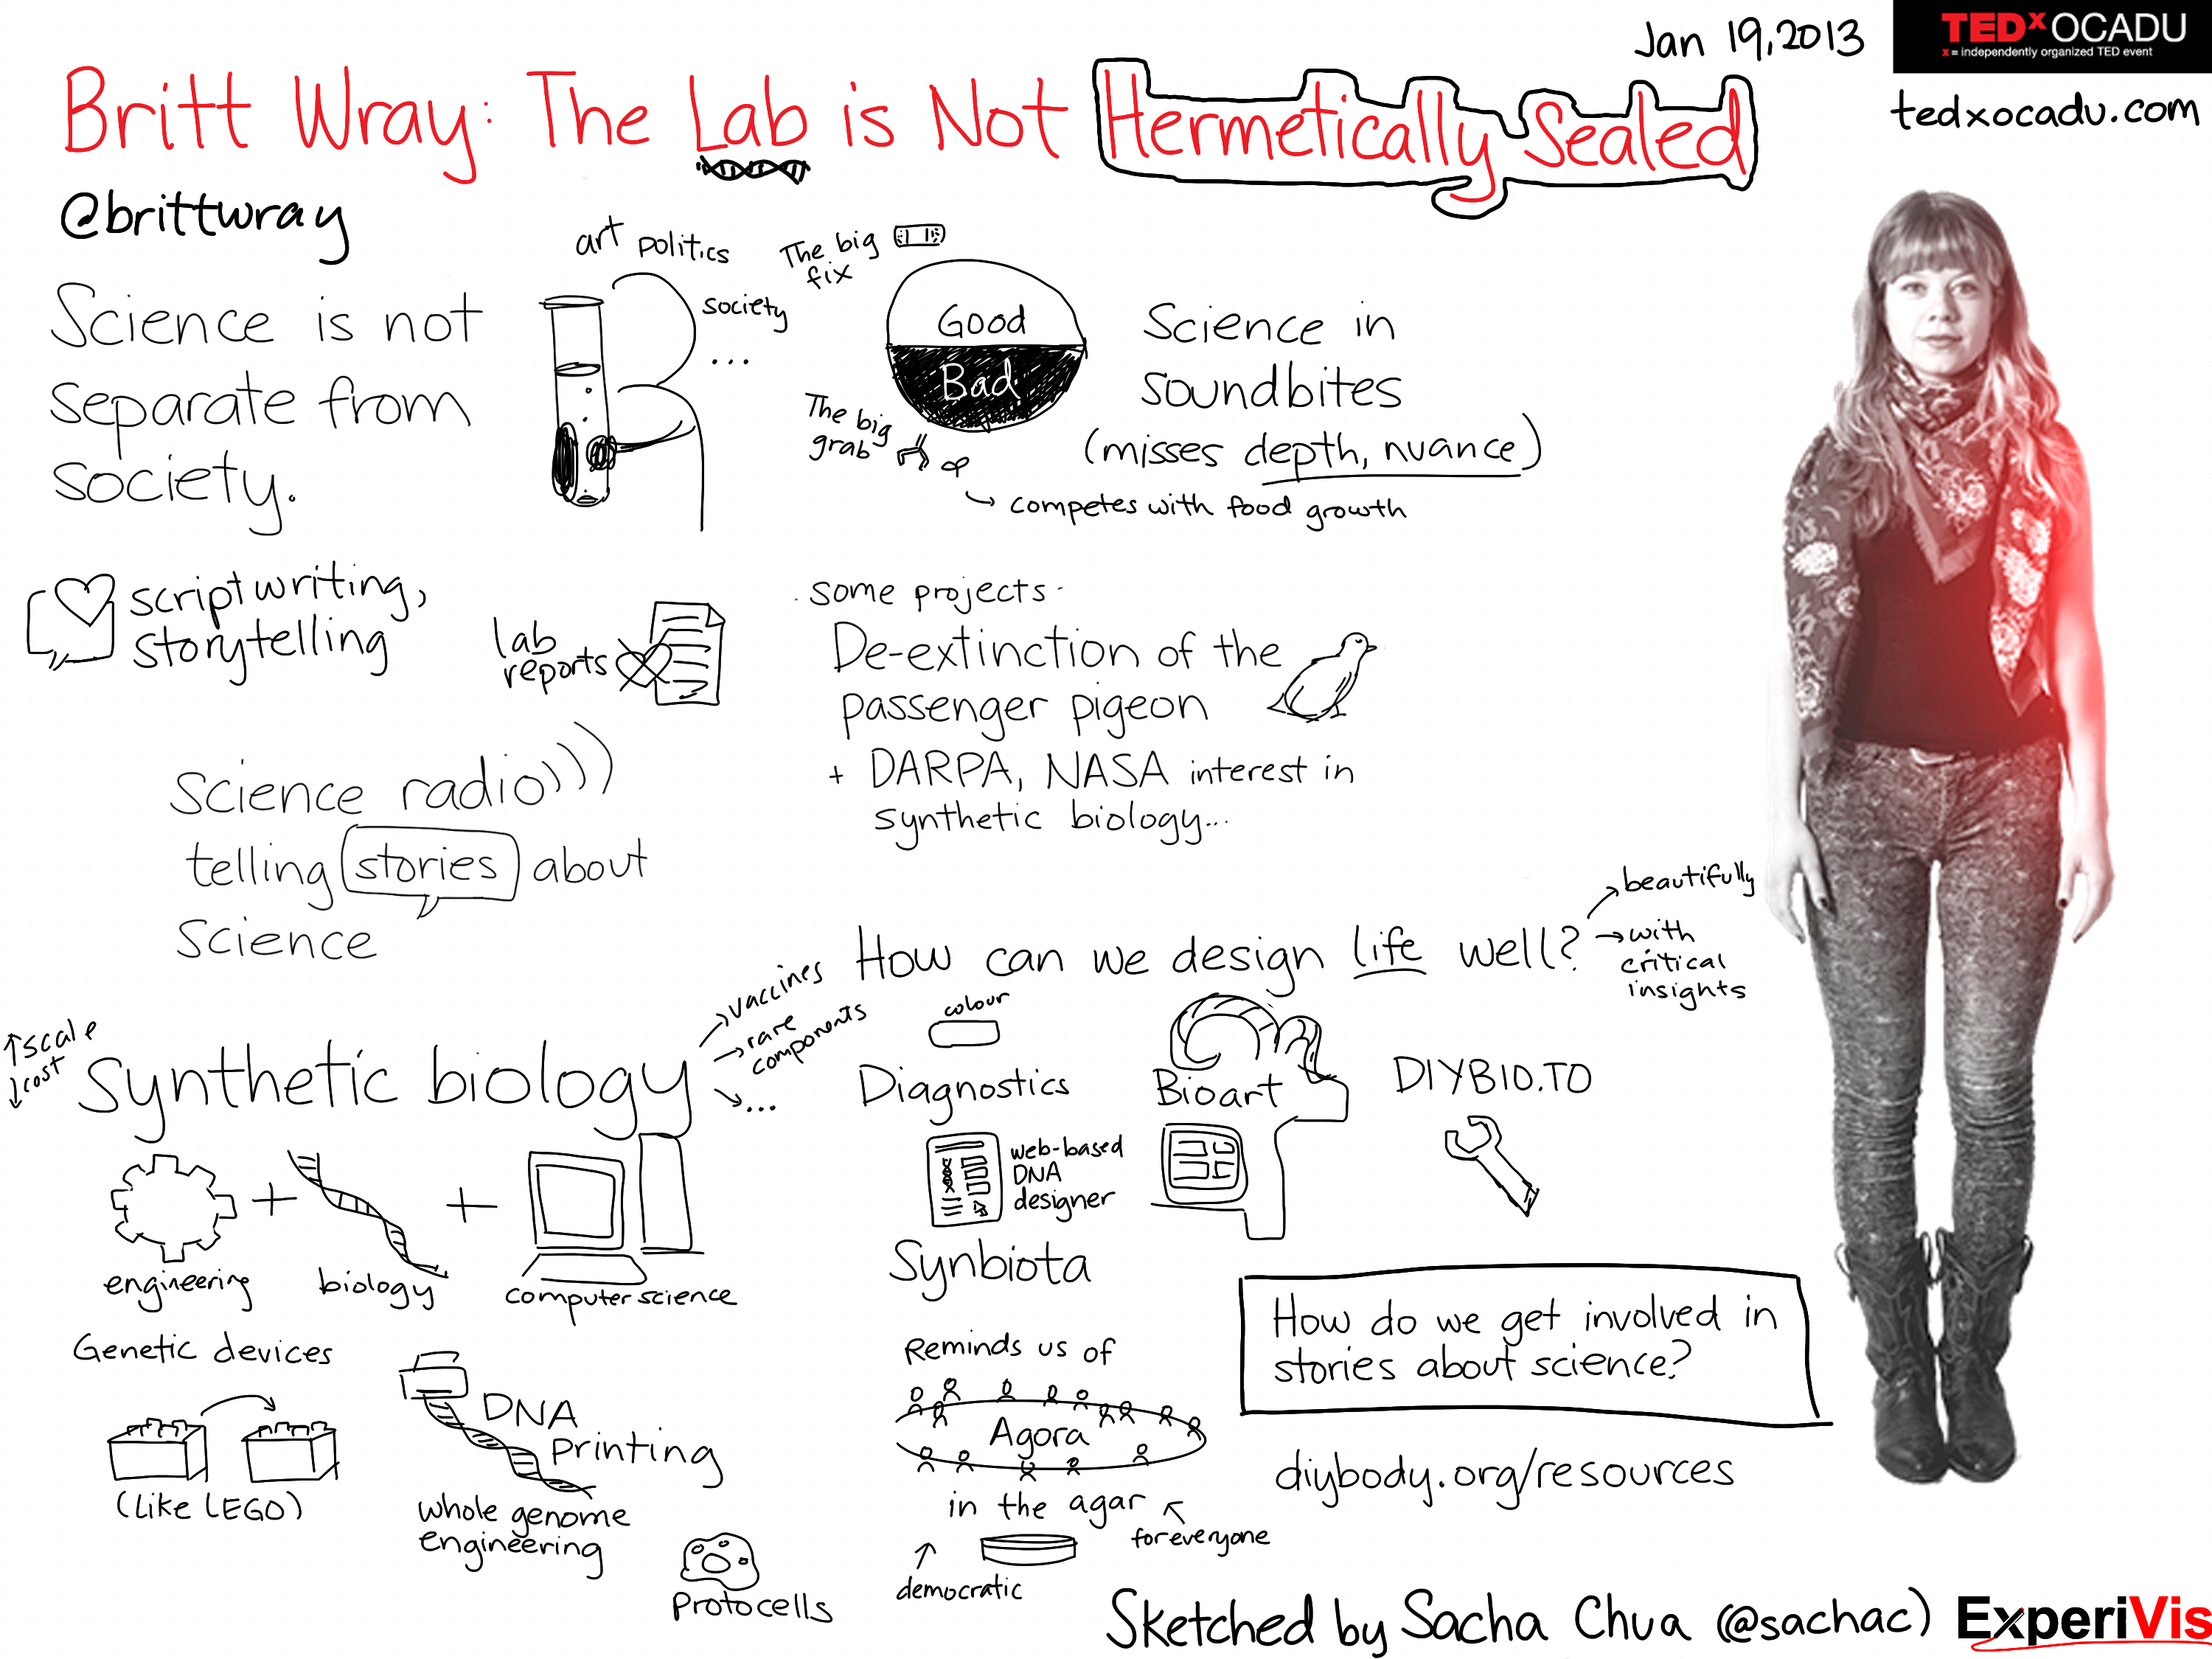 Jan 19, 2013
TEDx OCADU
x = independently organized TED event
tedxocadu.com
Britt Wray: The Lab is Not Hermetically Sealed
@brittwray
Science is not
separate from
society.
art politics
society
...
The big
fix
Good
Bad
The big
grab
competes with food growth
Science in
soundbites
(misses depth, nuance)
scriptwriting,
storytelling
lab
reports
some projects
De-extinction of the
passenger pigeon
+ DARPA, NASA interest in
synthetic biology...
Science radio
telling stories about
science
How can we design life well?
beautifully
with
critical
insights
↑ scale
↓ cost
Synthetic biology
vaccines
rare
components
...
engineering
+
biology
+
computer science
Genetic devices
(like LEGO)
DNA
Printing
whole genome
engineering
Protocells
colour
Diagnostics
Bioart
DIYBIO.TO
web-based
DNA
designer
Synbiota
Reminds us of
Agora
in the agar
for everyone
democratic
How do we get involved in
stories about science?
diybody.org/resources
Sketched by Sacha Chua (@sachac)
ExperiVis